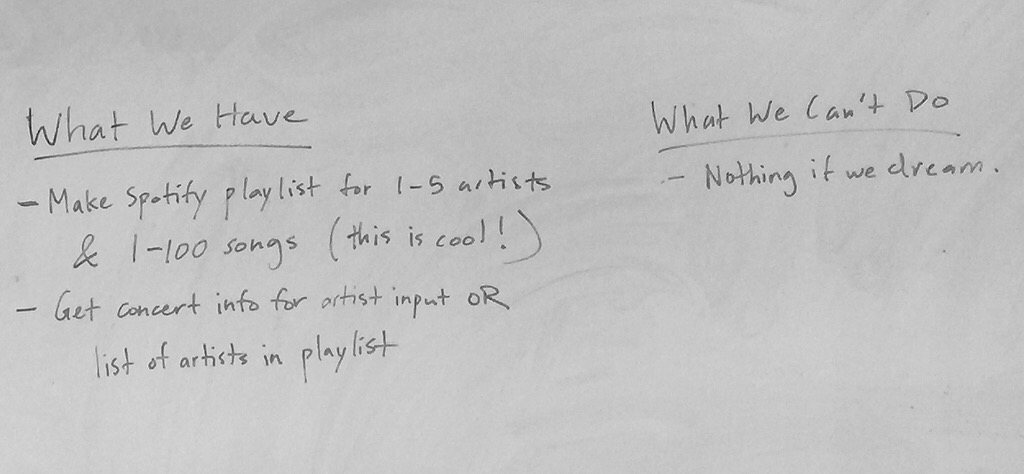 What We Have
- Make Spotify playlist for 1-5 artists
& 1-100 songs (this is cool!)
- Get concert info for artist input OR
list of artists in playlist
What We Can't Do
- Nothing if we dream.